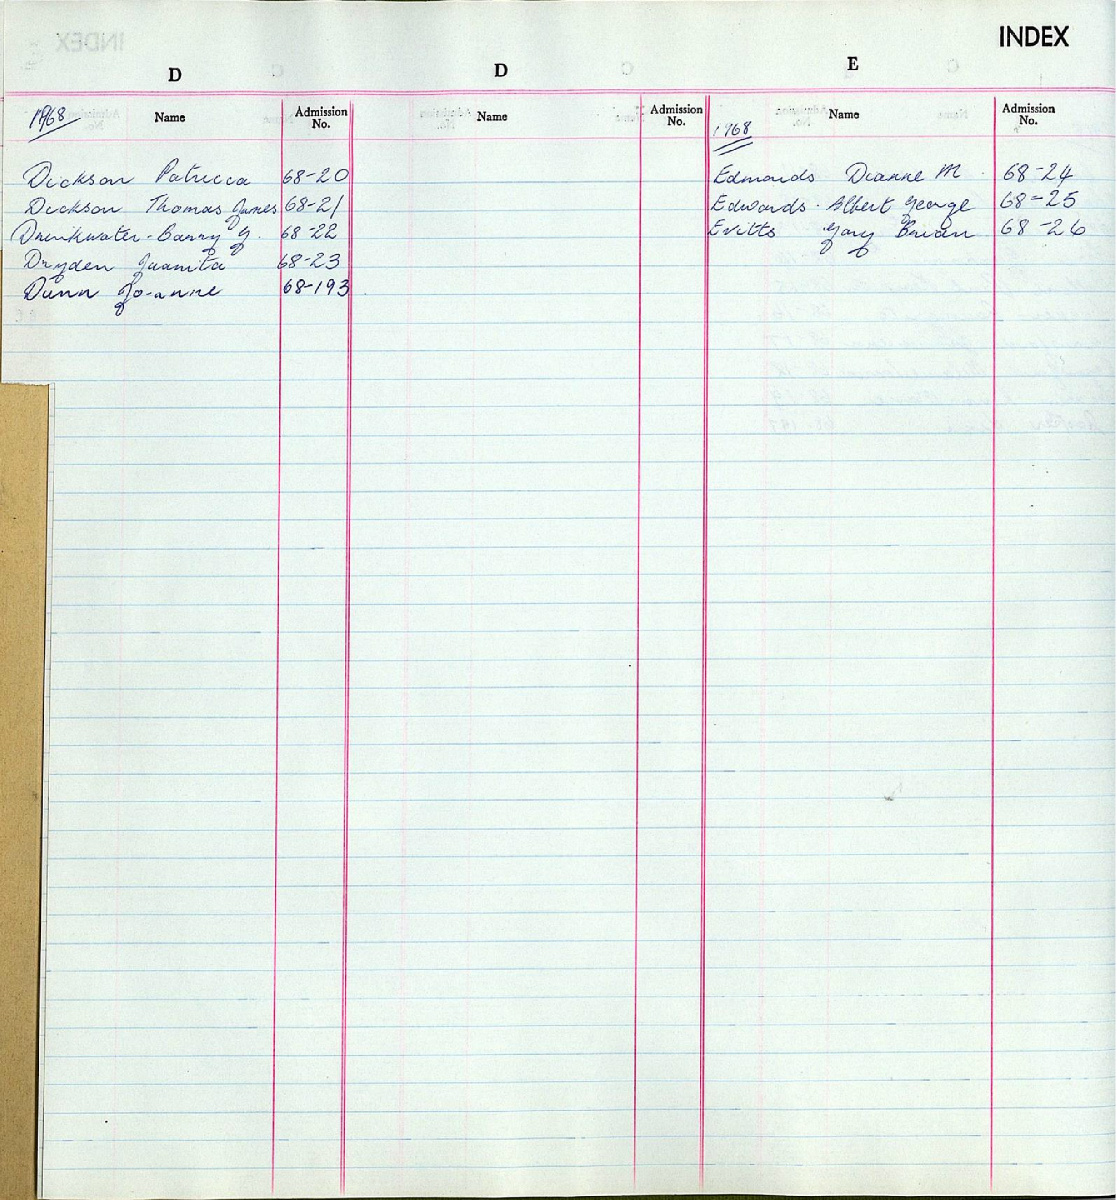 INDEX
D
D
E
Name
Admission No.
Name
Admission No.
Name
Admission No.
1968
Dickson Patricia 68-20
Dickson Thomas James 68-21
Drinkwater - Barry G. 68-22
Dryden Juanita 68-23
Dunn Jo-anne 68-193
1968
Edmonds Dianne M. 68-24
Edwards. Albert George 68-25
Evitts Gary Brian 68-26